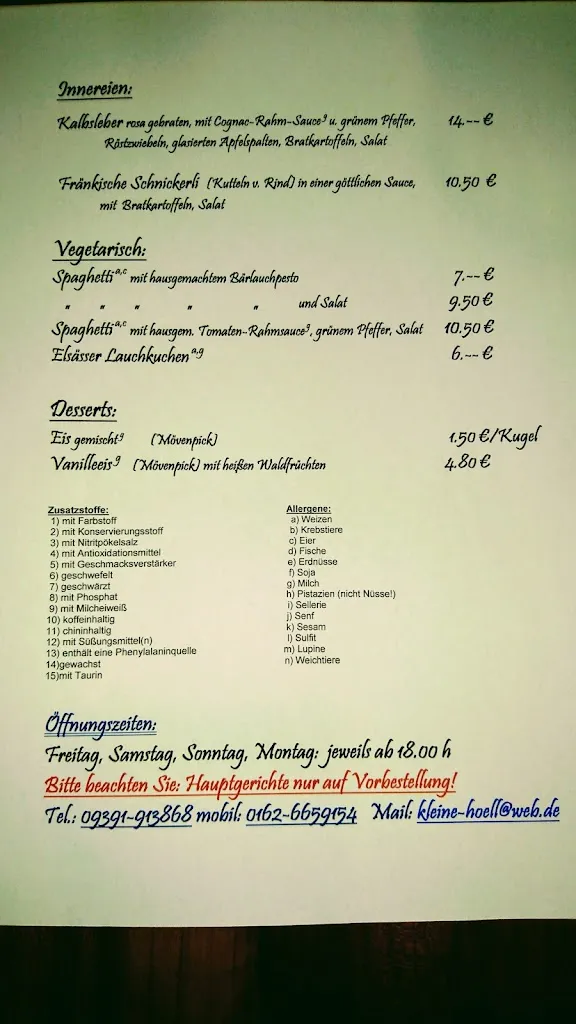 Innereien:
Kalbsleber rosa gebraten, mit Cognac-Rahm-Sauce⁹ u. grünem Pfeffer, 14.-- €
Röstzwiebeln, glasierten Apfelspalten, Bratkartoffeln, Salat
Fränkische Schnickerli (Kutteln v. Rind) in einer göttlichen Sauce, 10.50 €
mit Bratkartoffeln, Salat
Vegetarisch:
Spaghetti a,c mit hausgemachtem Bärlauchpesto 7.-- €
" " " " " und Salat 9.50 €
Spaghetti a,c mit hausgem. Tomaten-Rahmsauce⁹, grünem Pfeffer, Salat 10.50 €
Elsässer Lauchkuchen a,g 6.-- €
Desserts:
Eis gemischt g (Mövenpick) 1.50 €/Kugel
Vanilleeis g (Mövenpick) mit heißen Waldfrüchten 4.80 €
Zusatzstoffe: Allergene:
1) mit Farbstoff a) Weizen
2) mit Konservierungsstoff b) Krebstiere
3) mit Nitritpökelsalz c) Eier
4) mit Antioxidationsmittel d) Fische
5) mit Geschmacksverstärker e) Erdnüsse
6) geschwefelt f) Soja
7) geschwärzt g) Milch
8) mit Phosphat h) Pistazien (nicht Nüsse!)
9) mit Milcheiweiß i) Sellerie
10) koffeinhaltig j) Senf
11) chininhaltig k) Sesam
12) mit Süßungsmittel(n) l) Sulfit
13) enthält eine Phenylalaninquelle m) Lupine
14)gewachst n) Weichtiere
15)mit Taurin
Öffnungszeiten:
Freitag, Samstag, Sonntag, Montag: jeweils ab 18.00 h
Bitte beachten Sie: Hauptgerichte nur auf Vorbestellung!
Tel.: 09391-913868 mobil: 0162-6659154 Mail: kleine-hoell@web.de